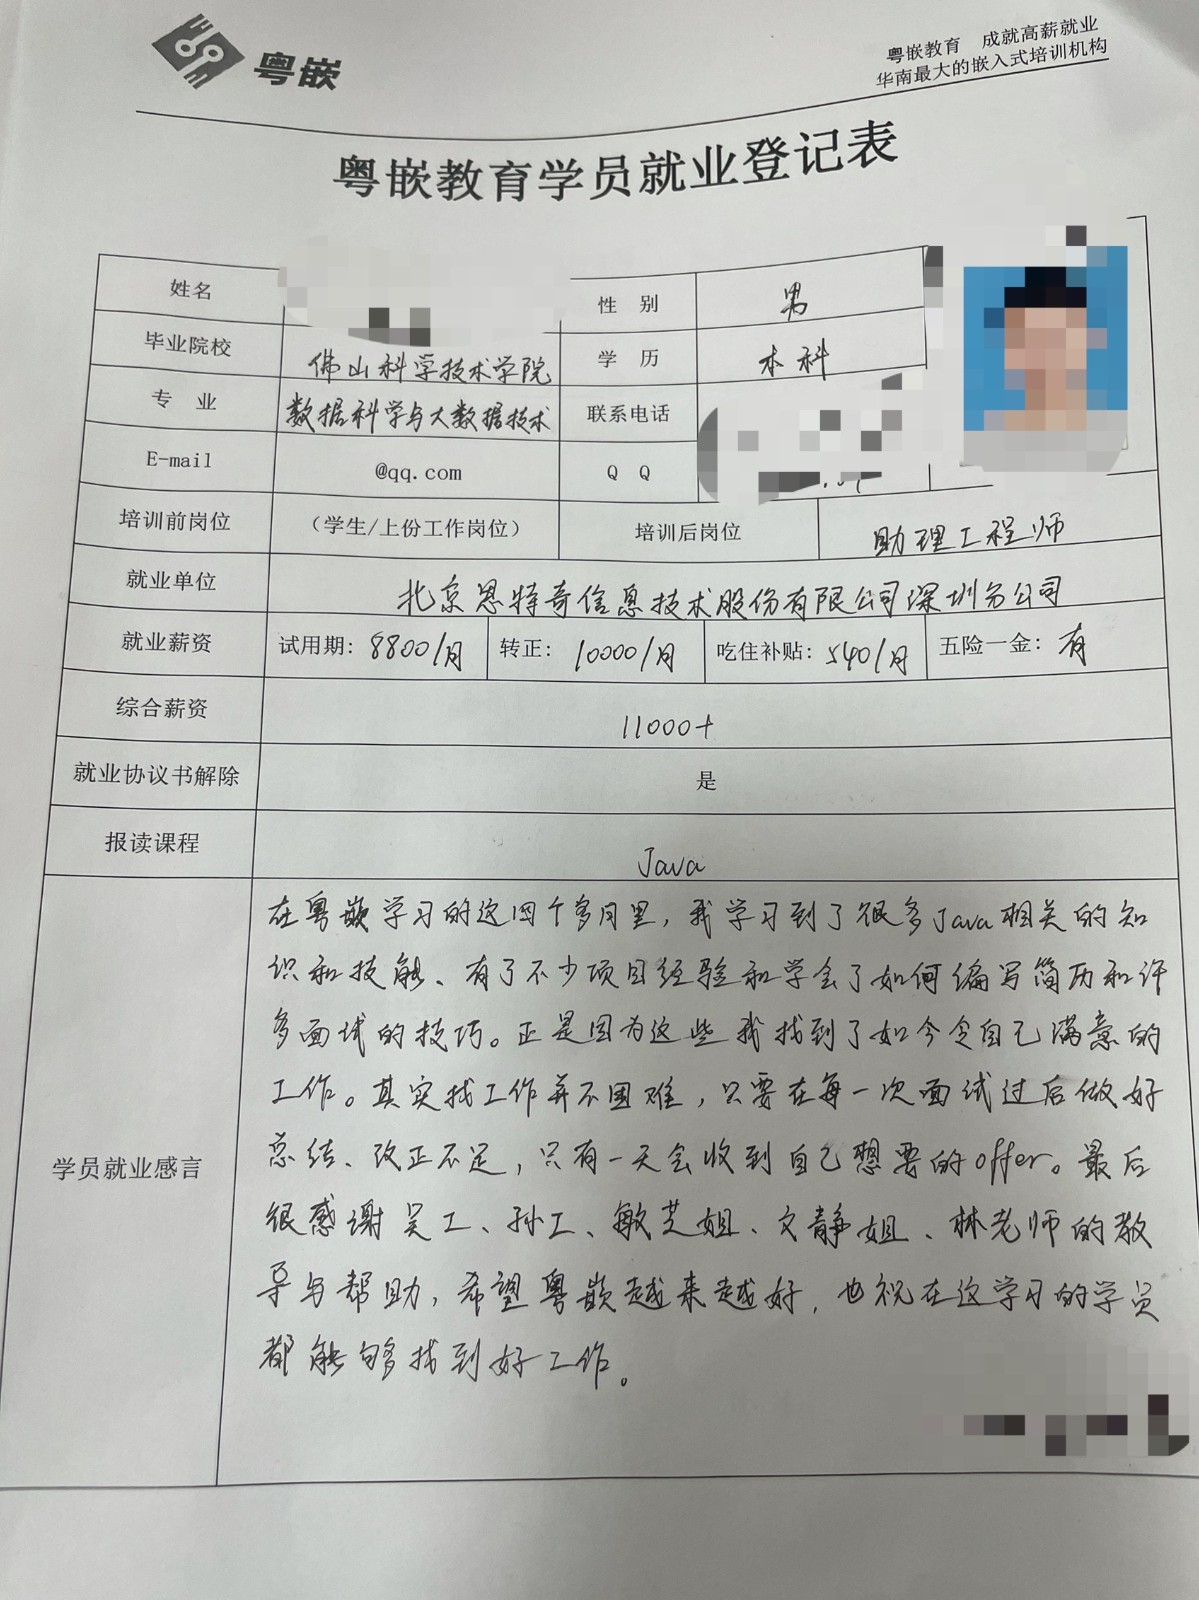 粤嵌
粤嵌教育 成就高薪就业
华南最大的嵌入式培训机构
粤嵌教育学员就业登记表
姓名 性 别 男
毕业院校 佛山科学技术学院 学 历 本科
专 业 数据科学与大数据技术 联系电话
E-mail @qq.com Q Q
培训前岗位 （学生/上份工作岗位） 培训后岗位 助理工程师
就业单位 北京思特奇信息技术股份有限公司深圳分公司
就业薪资 试用期：8800/月 转正：10000/月 吃住补贴：540/月 五险一金：有
综合薪资 11000+
就业协议书解除 是
报读课程 Java
学员就业感言
在粤嵌学习的这四个多月里，我学习到了很多Java相关的知
识和技能、有了不少项目经验和学会了如何编写简历和许
多面试的技巧。正是因为这些我找到了如今令自己满意的
工作。其实找工作并不困难，只要在每一次面试过后做好
总结、改正不足，只有一天会收到自己想要的offer。最后
很感谢吴工、孙工、敏芝姐、文静姐、林老师的教
导与帮助，希望粤嵌越来越好，也祝在这学习的学员
都能够找到好工作。